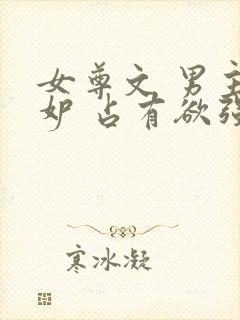 女尊文 男主
妒 占有欲强
寒冰凝